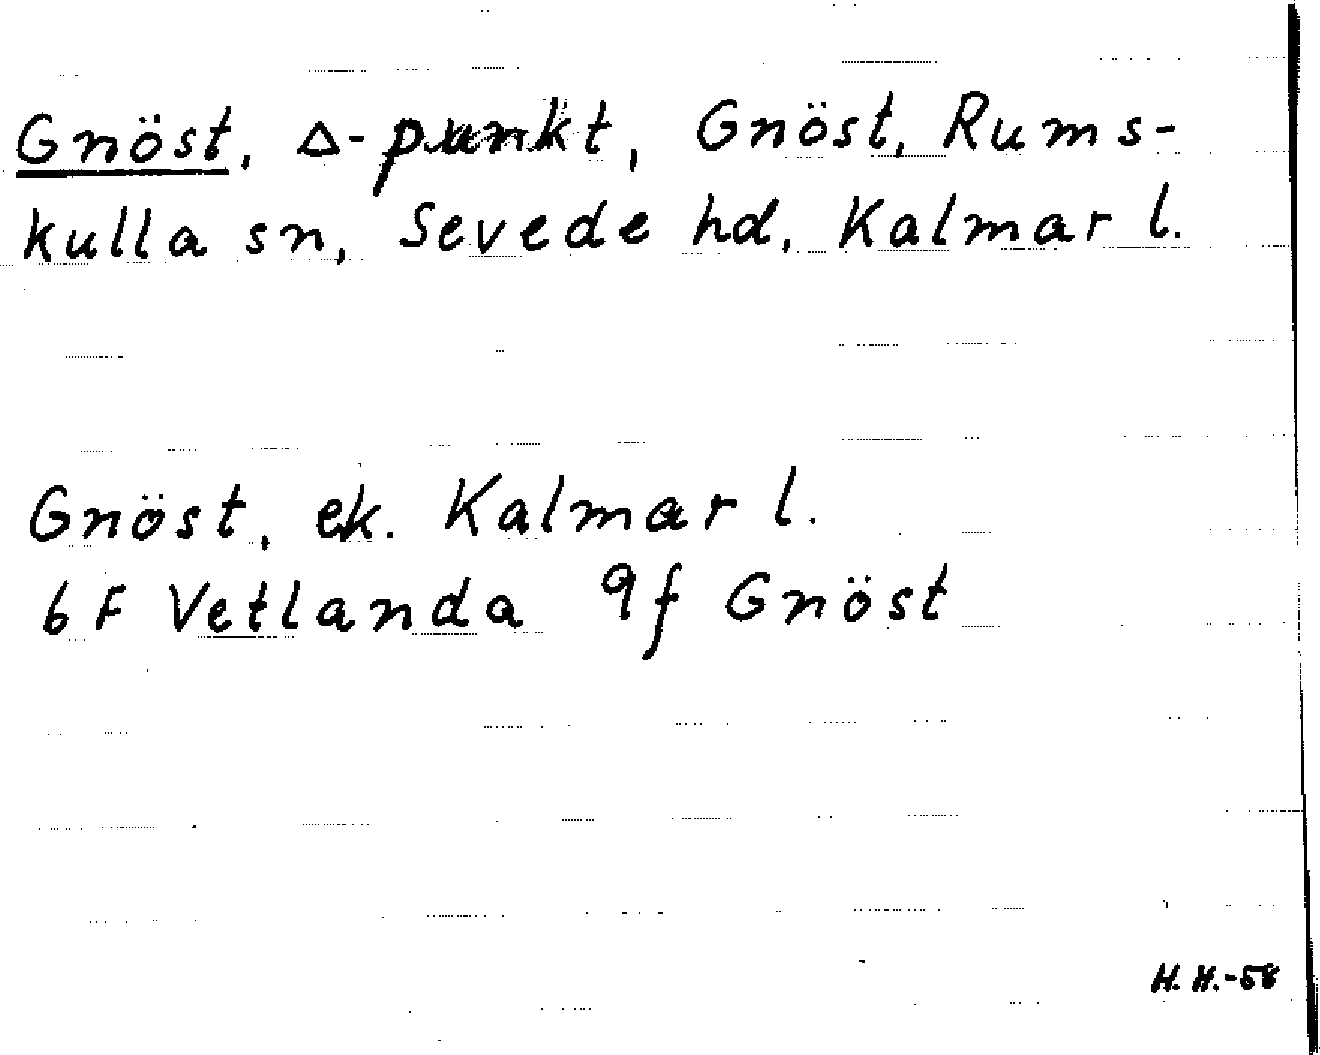 Gnöst, Δ-punkt, Gnöst, Rums-
kulla sn, Sevede hd, Kalmar l.
Gnöst, ek. Kalmar l.
6 F Vetlanda 9f Gnöst
H. H.-58